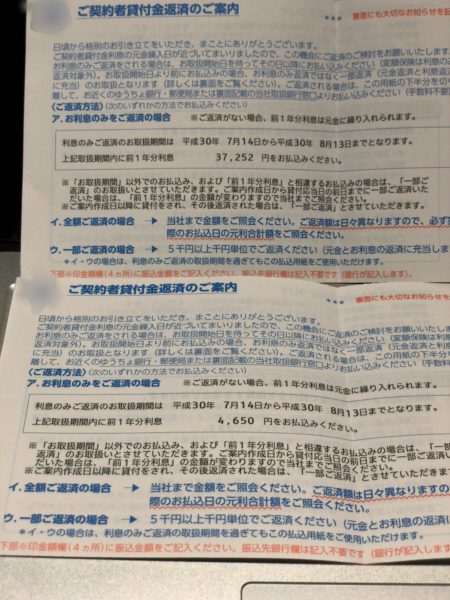 ご契約者貸付金返済のご案内
裏面にも大切なお知らせを記
日頃から格別のお引き立てをいただき、まことにありがとうございます。
ご契約者貸付金利息の元金繰入日が近づいてまいりましたので、この機会にご返済のご検討をお願いいたします
お利息のみご返済をされる場合は、お取扱開始日を待ってその日以降にお払込みください（変額保険は利息の
返済対象外）。お取扱開始日より前にお払込みの場合、お利息のみのご返済ではなく一部ご返済（元金返済と利
に充当）のお取扱となります（詳しくは裏面をご覧ください）。ご返済される場合は、この用紙の下半分を切
離して、お近くのゆうちょ銀行・郵便局または裏面記載の当社取扱銀行窓口よりお払込みください（手数料不要
〈ご返済方法〉（次のいずれかの方法でお払込みください）
ア. お利息のみをご返済の場合　※ご返済がない場合、前１年分利息は元金に繰り入れられます。
利息のみご返済のお取扱期間は　平成30年　7月14日から平成30年　8月13日までとなります。
上記取扱期間内に前１年分利息　37,252　円をお払込みください。
※「お取扱期間」以外でのお払込み、および「前１年分利息」と相違するお払込みの場合は、「一部ご
返済」のお取扱いとさせていただきます。ご案内作成日から貸付応当日の前日までに一部ご返済いた
だいた場合は、「前１年分利息」の金額が変わりますので当社までご照会ください。
※ご案内作成日以降に貸付をされ、その後返済された場合は、「一部ご返済」とさせていただきます。
イ. 全額ご返済の場合　→　当社まで金額をご照会ください。ご返済額は日々異なりますので、必ず
際のお払込日の元利合計額をご照会ください。
ウ. 一部ご返済の場合　→　５千円以上千円単位でご返済ください（元金とお利息の返済に充当しま
＊イ・ウの場合は、利息のみご返済の取扱期間を過ぎてもこの払込用紙をご使用いただけます。
下部※印金額欄（４ヵ所）に振込金額をご記入ください。振込先銀行欄は記入不要です（銀行が記入します）。
ご契約者貸付金返済のご案内
裏面にも大切なお知らせを
日頃から格別のお引き立てをいただき、まことにありがとうございます。
ご契約者貸付金利息の元金繰入日が近づいてまいりましたので、この機会にご返済のご検討をお願いいたし
お利息のみご返済をされる場合は、お取扱開始日を待ってその日以降にお払込みください（変額保険は利息
返済対象外）。お取扱開始日より前にお払込みの場合、お利息のみのご返済ではなく一部ご返済（元金返済と
に充当）のお取扱となります（詳しくは裏面をご覧ください）。ご返済される場合は、この用紙の下半分を
離して、お近くのゆうちょ銀行・郵便局または裏面記載の当社取扱銀行窓口よりお払込みください（手数料不
〈ご返済方法〉（次のいずれかの方法でお払込みください）
ア. お利息のみをご返済の場合　※ご返済がない場合、前１年分利息は元金に繰り入れられます。
利息のみご返済のお取扱期間は　平成30年　7月14日から平成30年　8月13日までとなります。
上記取扱期間内に前１年分利息　4,650　円をお払込みください。
※「お取扱期間」以外でのお払込み、および「前１年分利息」と相違するお払込みの場合は、「一部
返済」のお取扱いとさせていただきます。ご案内作成日から貸付応当日の前日までに一部ご返済い
だいた場合は、「前１年分利息」の金額が変わりますので当社までご照会ください。
※ご案内作成日以降に貸付をされ、その後返済された場合は、「一部ご返済」とさせていただきます
イ. 全額ご返済の場合　→　当社まで金額をご照会ください。ご返済額は日々異なりますの
際のお払込日の元利合計額をご照会ください。
ウ. 一部ご返済の場合　→　５千円以上千円単位でご返済ください（元金とお利息の返済に
＊イ・ウの場合は、利息のみご返済の取扱期間を過ぎてもこの払込用紙をご使用いただけます。
下部※印金額欄（４ヵ所）に振込金額をご記入ください。振込先銀行欄は記入不要です（銀行が記入します